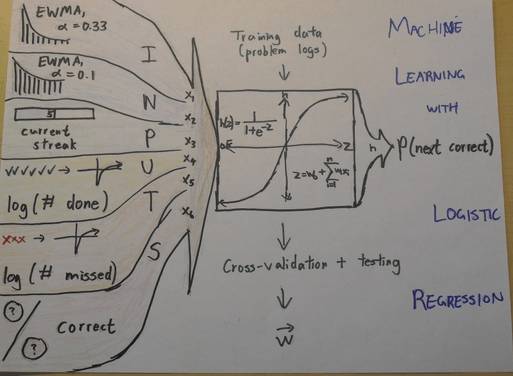 EWMA,
α = 0.33
EWMA,
α = 0.1
5
current
streak
✓✓✓✓✓ →
log(# done)
xxx →
log(# missed)
?
/
?
correct
I
N
P
U
T
S
x₁
x₂
x₃
x₄
x₅
x₆
Training data
(problem logs)
h
h(z) = 1
1+e⁻ᶻ
z
z = w₀ + Σ wᵢxᵢ
n
i=1
Cross-validation + testing
w⃗
h
P(next correct)
MACHINE
LEARNING
WITH
LOGISTIC
REGRESSION